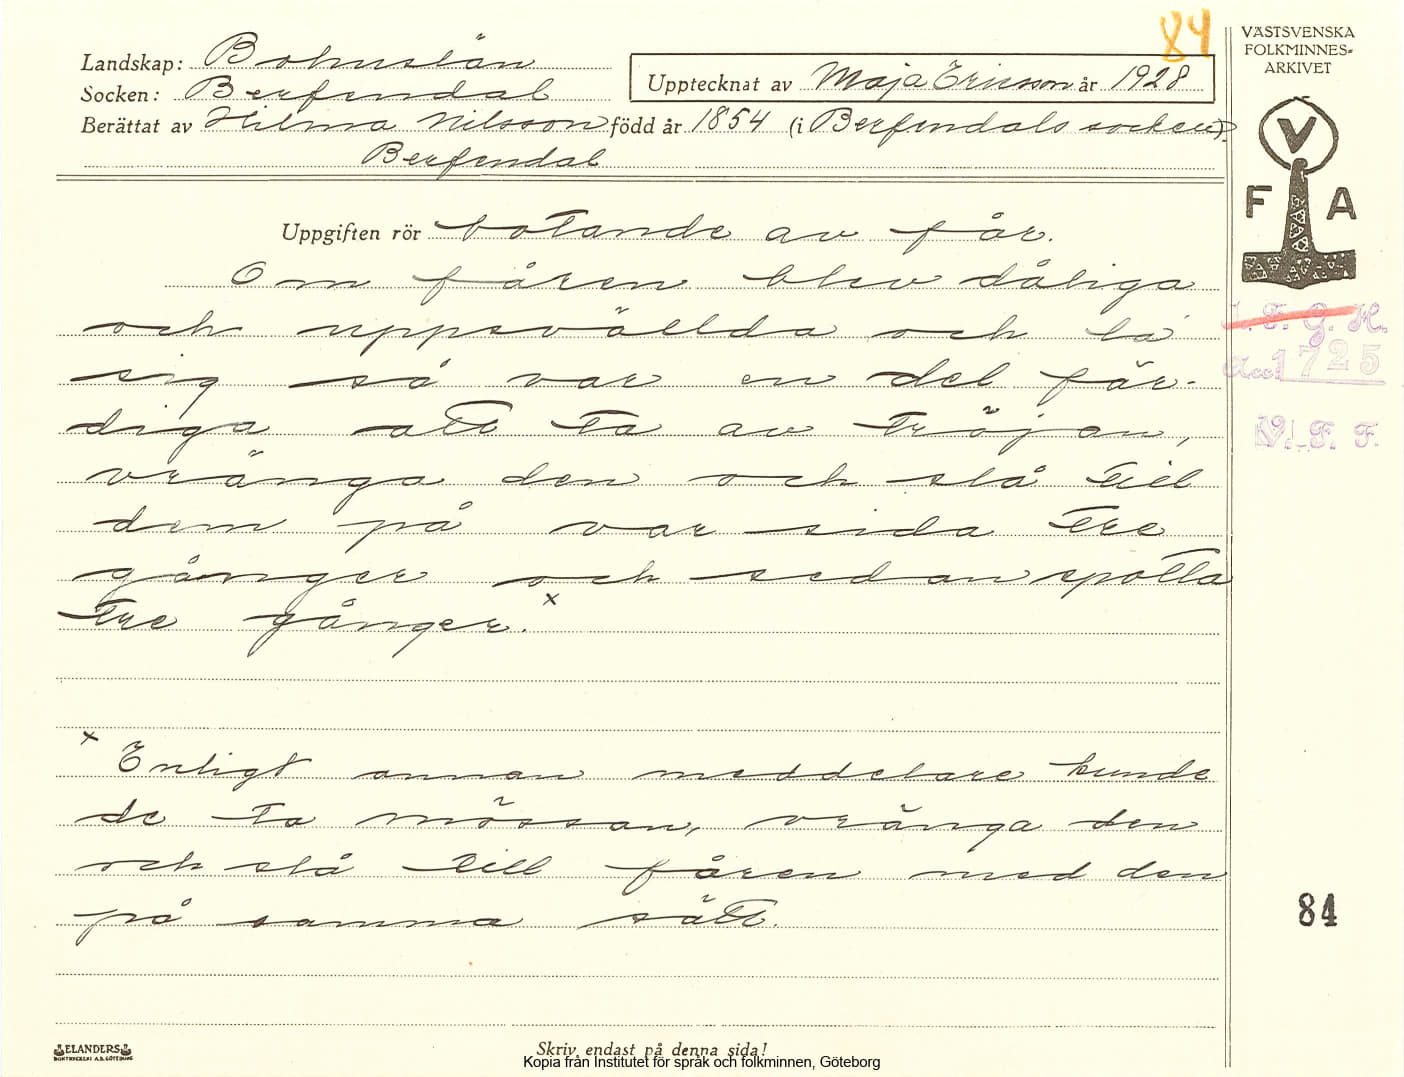 84
VÄSTSVENSKA
FOLKMINNES-
ARKIVET
Landskap: Bohuslän
Upptecknat av Maja Ericsson år 1928
Socken: Berfendal
Berättat av Hilma Nilsson född år 1854 (i Berfendals socken).
Berfendal
V
F A
Uppgiften rör botande av får.
Om fåren blev dåliga
och uppsvällda och la
sig så var en del fär-
diga att ta av tröjan,
vränga den och slå till
dem på var sida tre
gånger och sedan spotta
tre gånger.x
I. F. G. H.
Acc. 1725
V. F. F.
x Enligt annan meddelare kunde
de ta mössan, vränga den
och slå till fåren med den
på samma sätt.
84
ELANDERS
BOKTRYCKERI A.B. GÖTEBORG
Skriv endast på denna sida!
Kopia från Institutet för språk och folkminnen, Göteborg